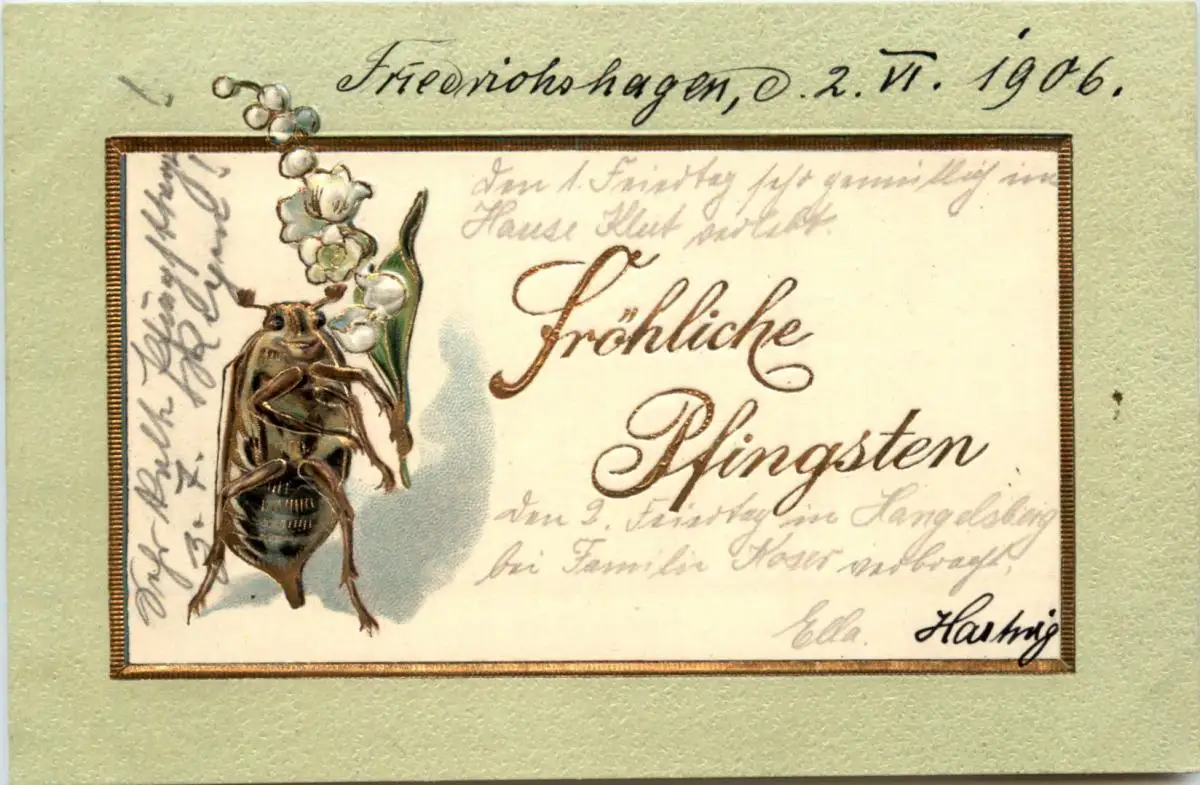 Friedrichshagen, d. 2. VI. 1906.
Den 1. Feiertag sehr gemütlich im
Hause Klut verlebt.
Fröhliche
Pfingsten
Den 2. Feiertag in Hangelsberg
bei Familie Koser verbracht.
Ella. Hartwig
Sehr
3. 7.